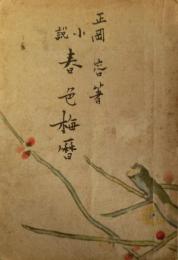 正岡容著
小説
春色梅暦